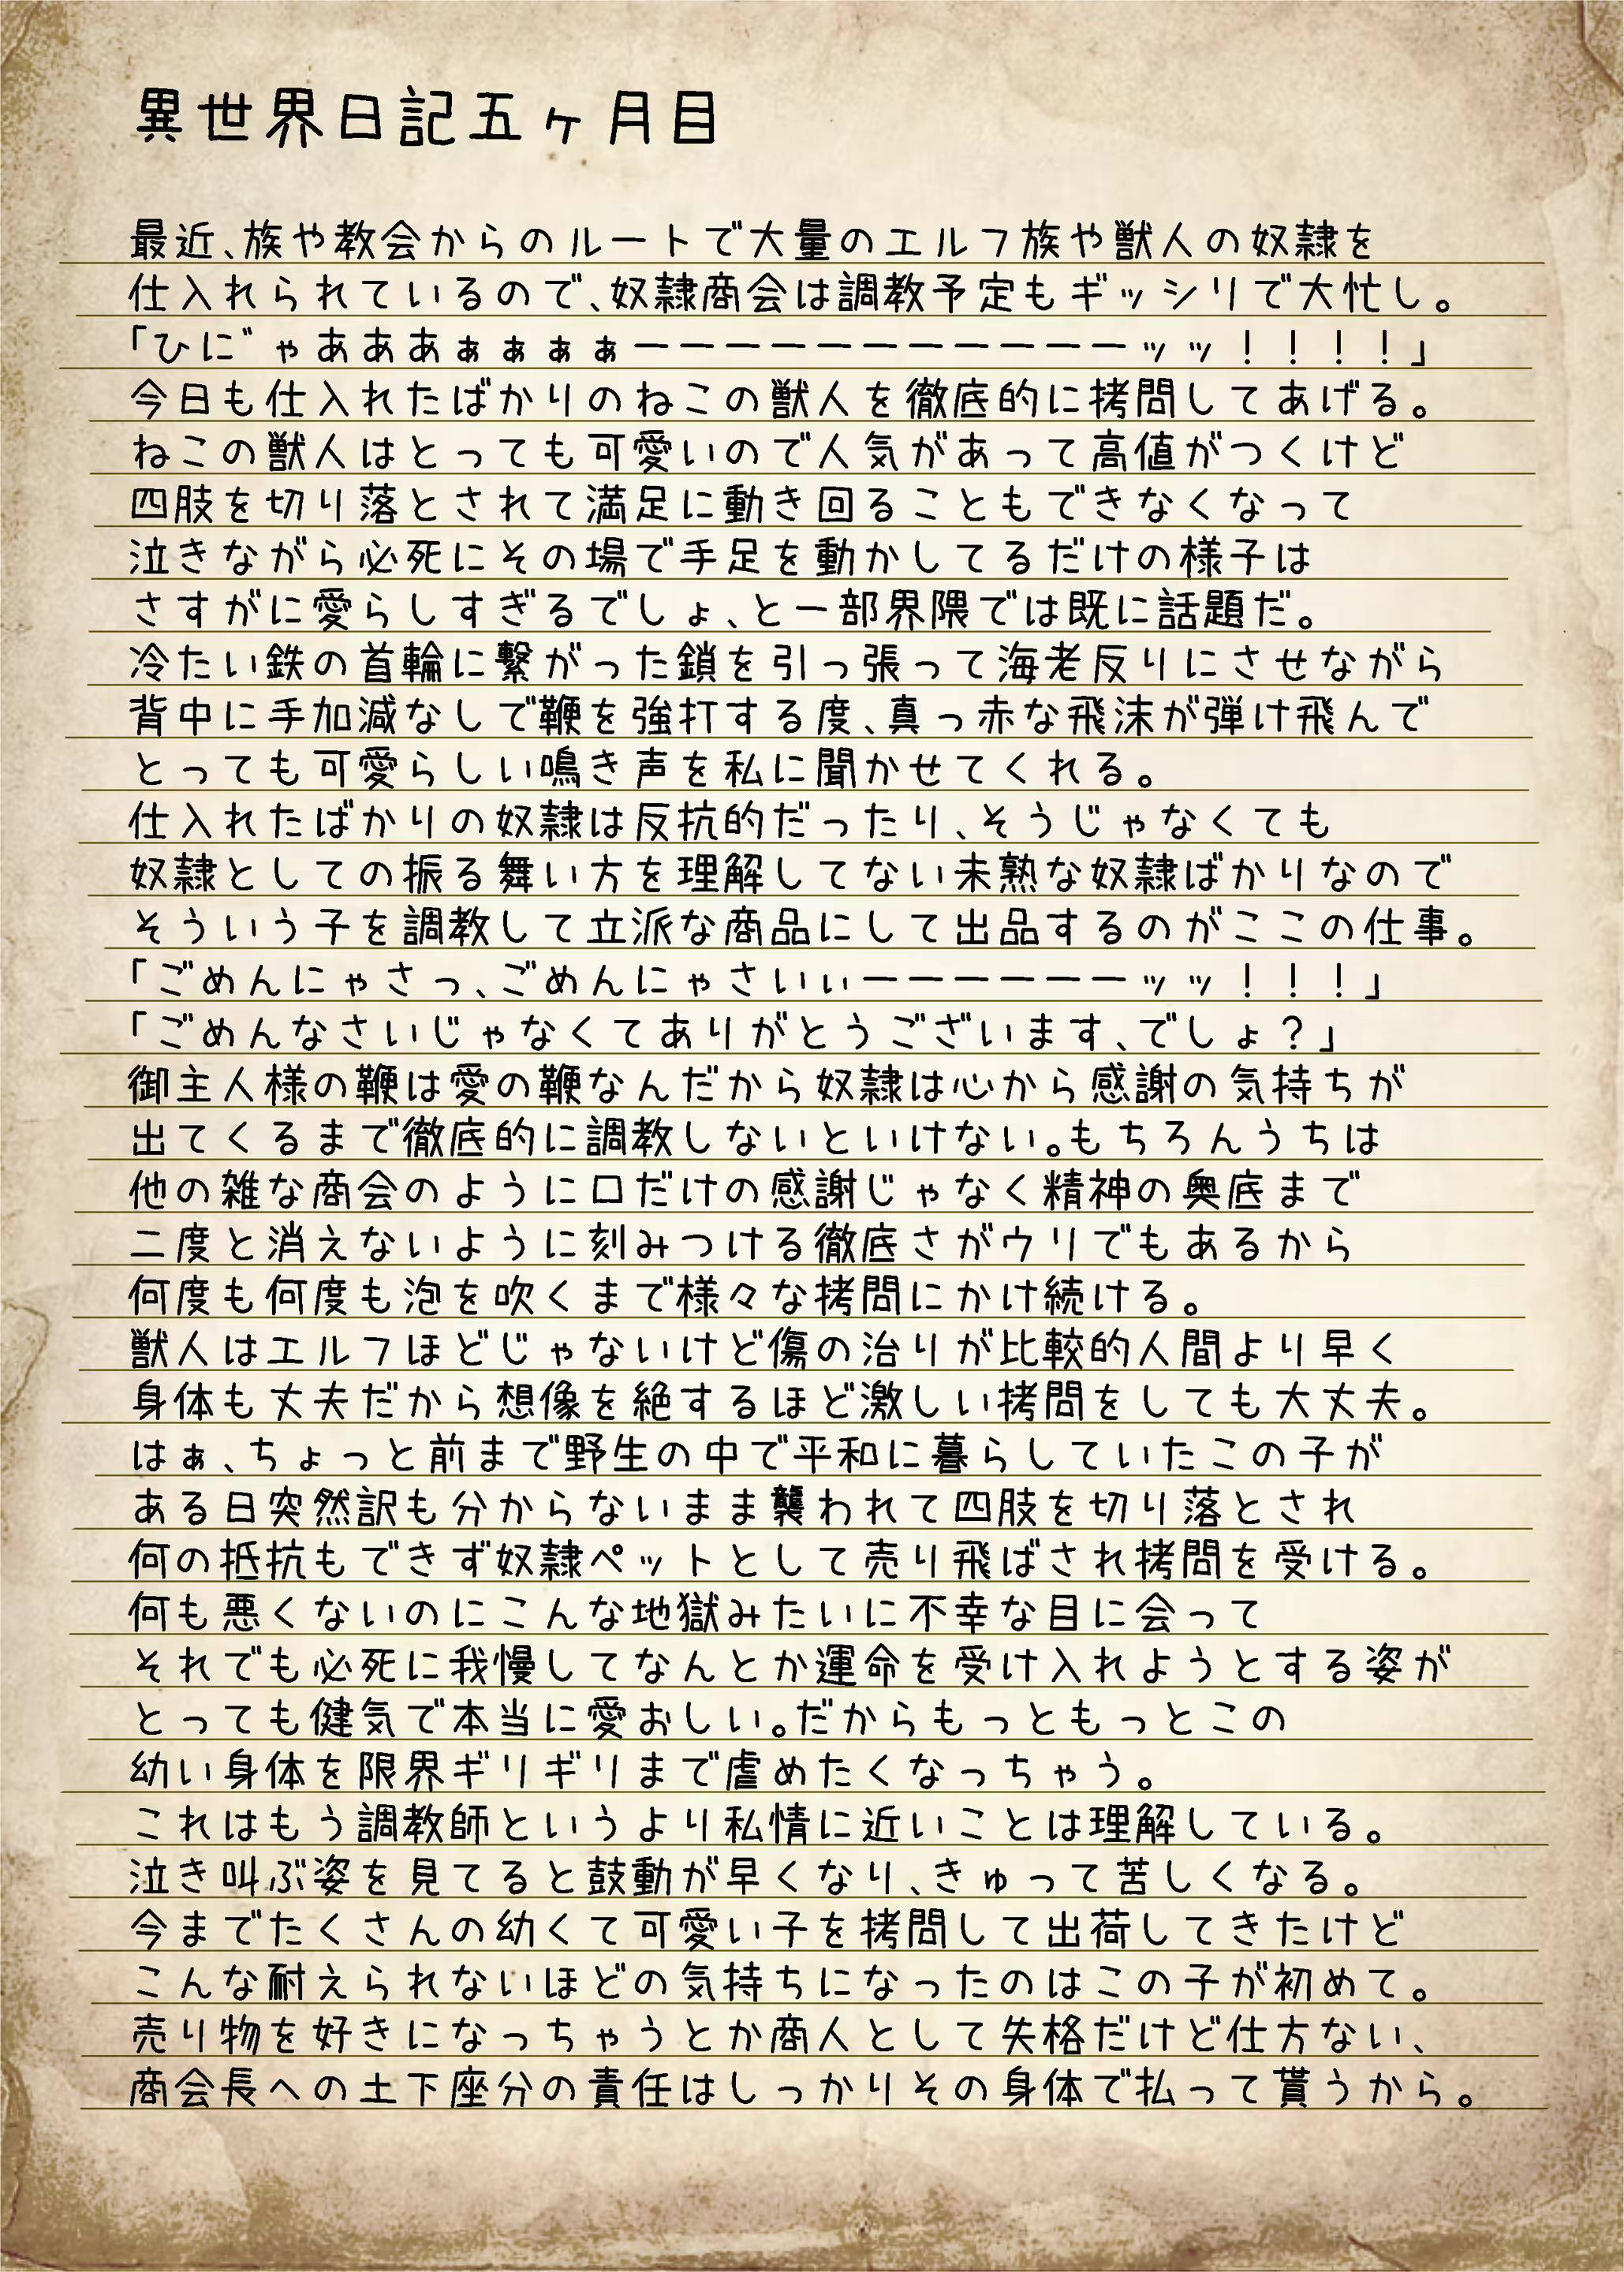 異世界日記五ヶ月目
最近、族や教会からのルートで大量のエルフ族や獣人の奴隷を
仕入れられているので、奴隷商会は調教予定もギッシリで大忙し。
「ひに゛ゃあああぁぁぁぁーーーーーーーーーーーッッ！！！！」
今日も仕入れたばかりのねこの獣人を徹底的に拷問してあげる。
ねこの獣人はとっても可愛いので人気があって高値がつくけど
四肢を切り落とされて満足に動き回ることもできなくなって
泣きながら必死にその場で手足を動かしてるだけの様子は
さすがに愛らしすぎるでしょ、と一部界隈では既に話題だ。
冷たい鉄の首輪に繋がった鎖を引っ張って海老反りにさせながら
背中に手加減なしで鞭を強打する度、真っ赤な飛沫が弾け飛んで
とっても可愛らしい鳴き声を私に聞かせてくれる。
仕入れたばかりの奴隷は反抗的だったり、そうじゃなくても
奴隷としての振る舞い方を理解してない未熟な奴隷ばかりなので
そういう子を調教して立派な商品にして出品するのがここの仕事。
「ごめんにゃさっ、ごめんにゃさいぃーーーーーーッッ！！！」
「ごめんなさいじゃなくてありがとうございます、でしょ？」
御主人様の鞭は愛の鞭なんだから奴隷は心から感謝の気持ちが
出てくるまで徹底的に調教しないといけない。もちろんうちは
他の雑な商会のように口だけの感謝じゃなく精神の奥底まで
二度と消えないように刻みつける徹底さがウリでもあるから
何度も何度も泡を吹くまで様々な拷問にかけ続ける。
獣人はエルフほどじゃないけど傷の治りが比較的人間より早く
身体も丈夫だから想像を絶するほど激しい拷問をしても大丈夫。
はぁ、ちょっと前まで野生の中で平和に暮らしていたこの子が
ある日突然訳も分からないまま襲われて四肢を切り落とされ
何の抵抗もできず奴隷ペットとして売り飛ばされ拷問を受ける。
何も悪くないのにこんな地獄みたいに不幸な目に会って
それでも必死に我慢してなんとか運命を受け入れようとする姿が
とっても健気で本当に愛おしい。だからもっともっとこの
幼い身体を限界ギリギリまで虐めたくなっちゃう。
これはもう調教師というより私情に近いことは理解している。
泣き叫ぶ姿を見てると鼓動が早くなり、きゅって苦しくなる。
今までたくさんの幼くて可愛い子を拷問して出荷してきたけど
こんな耐えられないほどの気持ちになったのはこの子が初めて。
売り物を好きになっちゃうとか商人として失格だけど仕方ない、
商会長への土下座分の責任はしっかりその身体で払って貰うから。